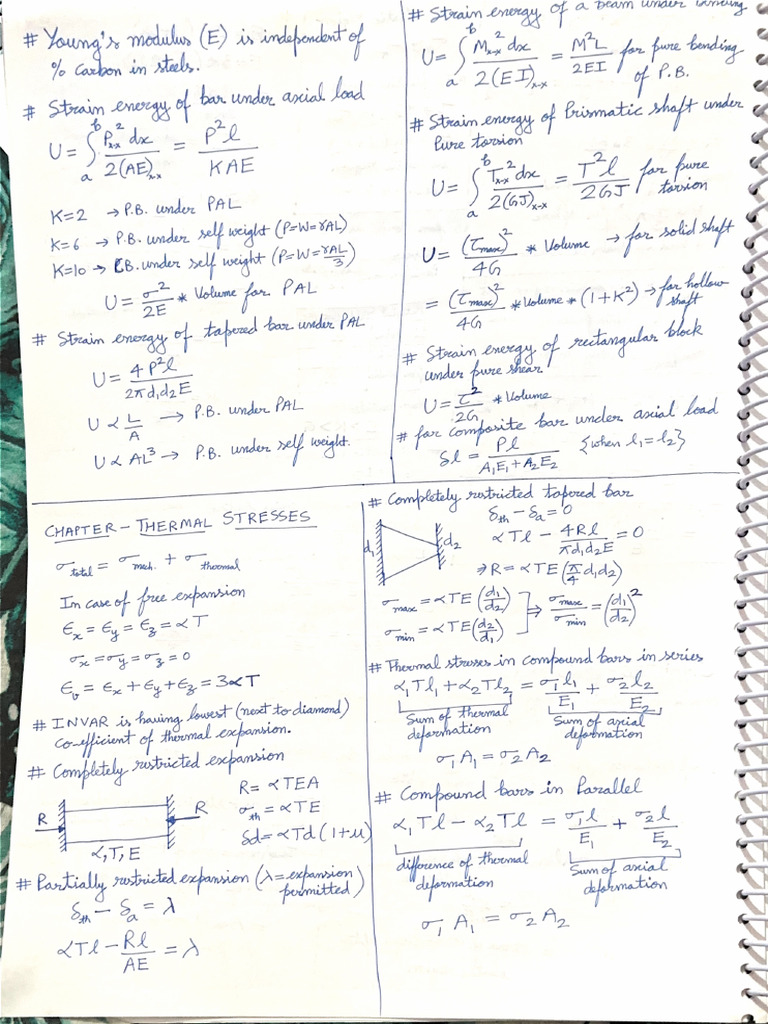 # Young's modulus (E) is independent of
% carbon in steels.
# Strain energy of bar under axial load
U = ∫ₐᵇ Pₓ₋ₓ² dx / 2(AE)ₓ₋ₓ = P²l / KAE
K=2 → P.B. under PAL
K=6 → P.B. under self weight (P=W=γAL)
K=10 → C.B. under self weight (P=W=γAL/3)
U = σ²/2E * Volume for PAL
# Strain energy of tapered bar under PAL
U = 4P²l / 2πd₁d₂E
U ∝ L/A → P.B. under PAL
U ∝ AL³ → P.B. under self weight.
# Strain energy of a beam under bending
U = ∫ₐᵇ Mₓ₋ₓ² dx / 2(EI)ₓ₋ₓ = M²L / 2EI for pure bending
of P.B.
# Strain energy of Prismatic shaft under
Pure torsion
U = ∫ₐᵇ Tₓ₋ₓ² dx / 2(GJ)ₓ₋ₓ = T²l / 2GJ for pure
torsion
U = (τmax)²/4G * Volume → for solid shaft
= (τmax)²/4G * Volume * (1+K²) → for hollow
shaft
# Strain energy of rectangular block
under pure shear
U = τ²/2G * Volume
# for composite bar under axial load
δl = Pl / A₁E₁+A₂E₂ {when l₁=l₂}
CHAPTER – THERMAL STRESSES
σtotal = σmech. + σthermal
In case of free expansion
ϵx = ϵy = ϵz = αT
σx = σy = σz = 0
ϵv = ϵx + ϵy + ϵz = 3αT
# INVAR is having lowest (next to diamond)
co-efficient of thermal expansion.
# Completely restricted expansion
R
R
α,T,E
R = αTEA
σth = αTE
δd = αTd(1+μ)
# Partially restricted expansion (λ=expansion
permitted)
δth – δa = λ
αTl – Rl/AE = λ
# Completely restricted tapered bar
d₁
d₂
δth – δa = 0
αTl – 4Rl/πd₁d₂E = 0
⇒ R = αTE(π/4 d₁d₂)
σmax = αTE(d₁/d₂)
σmin = αTE(d₂/d₁)
⇒ σmax/σmin = (d₁/d₂)²
# Thermal stresses in compound bars in series
α₁Tl₁ + α₂Tl₂ = σ₁l₁/E₁ + σ₂l₂/E₂
Sum of thermal
deformation
Sum of axial
deformation
σ₁A₁ = σ₂A₂
# Compound bars in Parallel
α₁Tl – α₂Tl = σ₁l/E₁ + σ₂l/E₂
difference of thermal
deformation
Sum of axial
deformation
σ₁A₁ = σ₂A₂